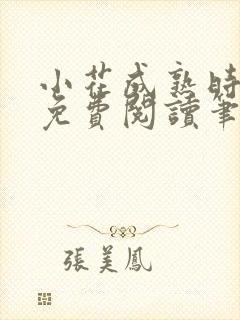 小花成熟时
免費閱讀筆
張美鳳